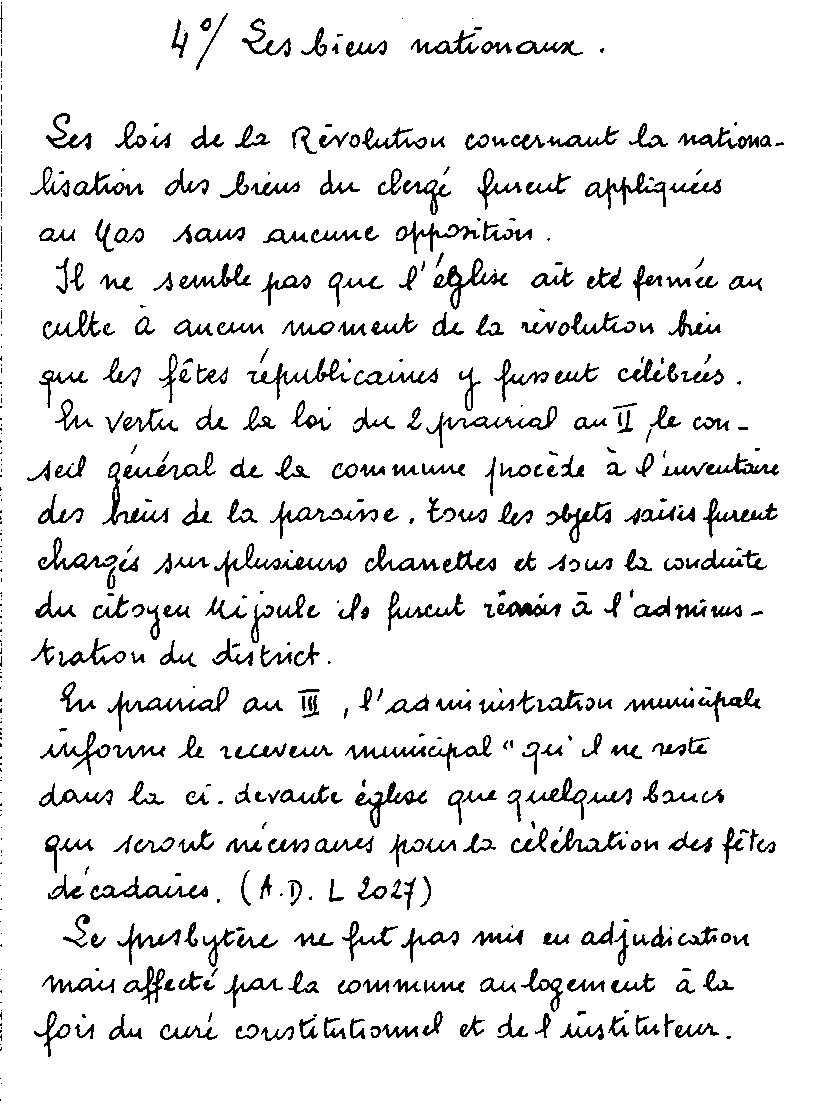 4°/ Les biens nationaux.
Les lois de la Révolution concernant la nationa-
lisation des biens du clergé furent appliquées
au Yas sans aucune opposition.
Il ne semble pas que l'église ait été fermée au
culte à aucun moment de la révolution bien
que les fêtes républicaines y fussent célébrées.
En vertu de la loi du 2 prairial an II, le con-
seil général de la commune procède à l'inventaire
des biens de la paroisse. Tous les objets saisis furent
chargés sur plusieurs charrettes et sous la conduite
du citoyen Mijoule ils furent remis à l'adminis-
tration du district.
En prairial an III, l'administration municipale
informe le receveur municipal "qu'il ne reste
dans la ci-devante église que quelques bancs
qui seront nécessaires pour la célébration des fêtes
décadaires. (A.D. L 2027)
Le presbytère ne fut pas mis en adjudication
mais affecté par la commune au logement à la
fois du curé constitutionnel et de l'instituteur.